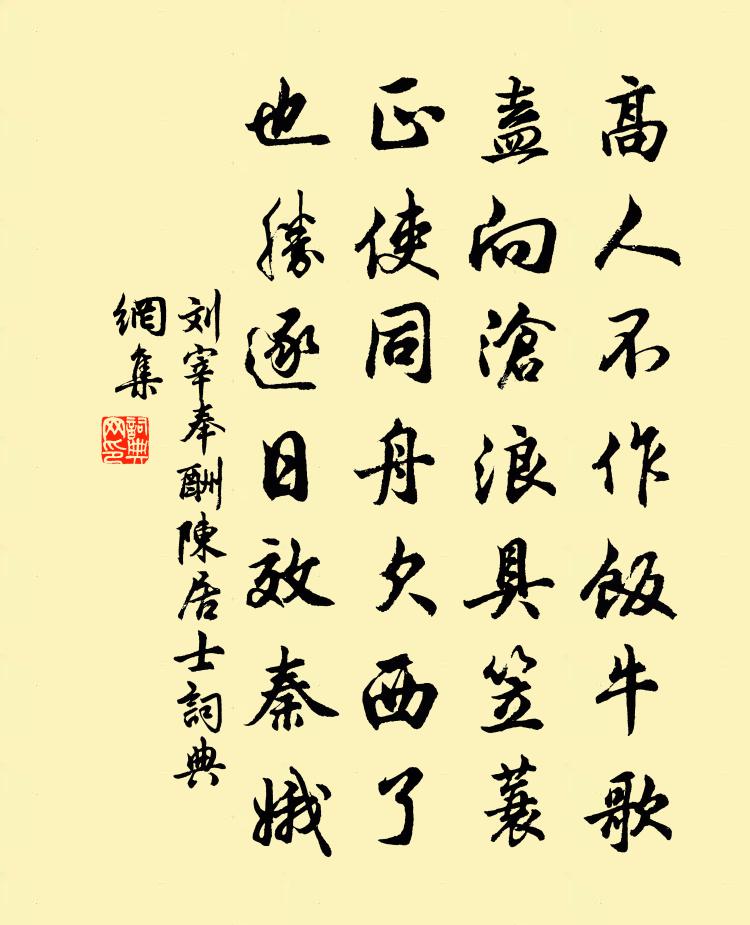 高人不作飯牛歌
盍向滄浪具笠蓑
正使同舟欠西了
也勝逐日效秦娥
刘宰奉酬陳居士詞典
網集
詞典
网印